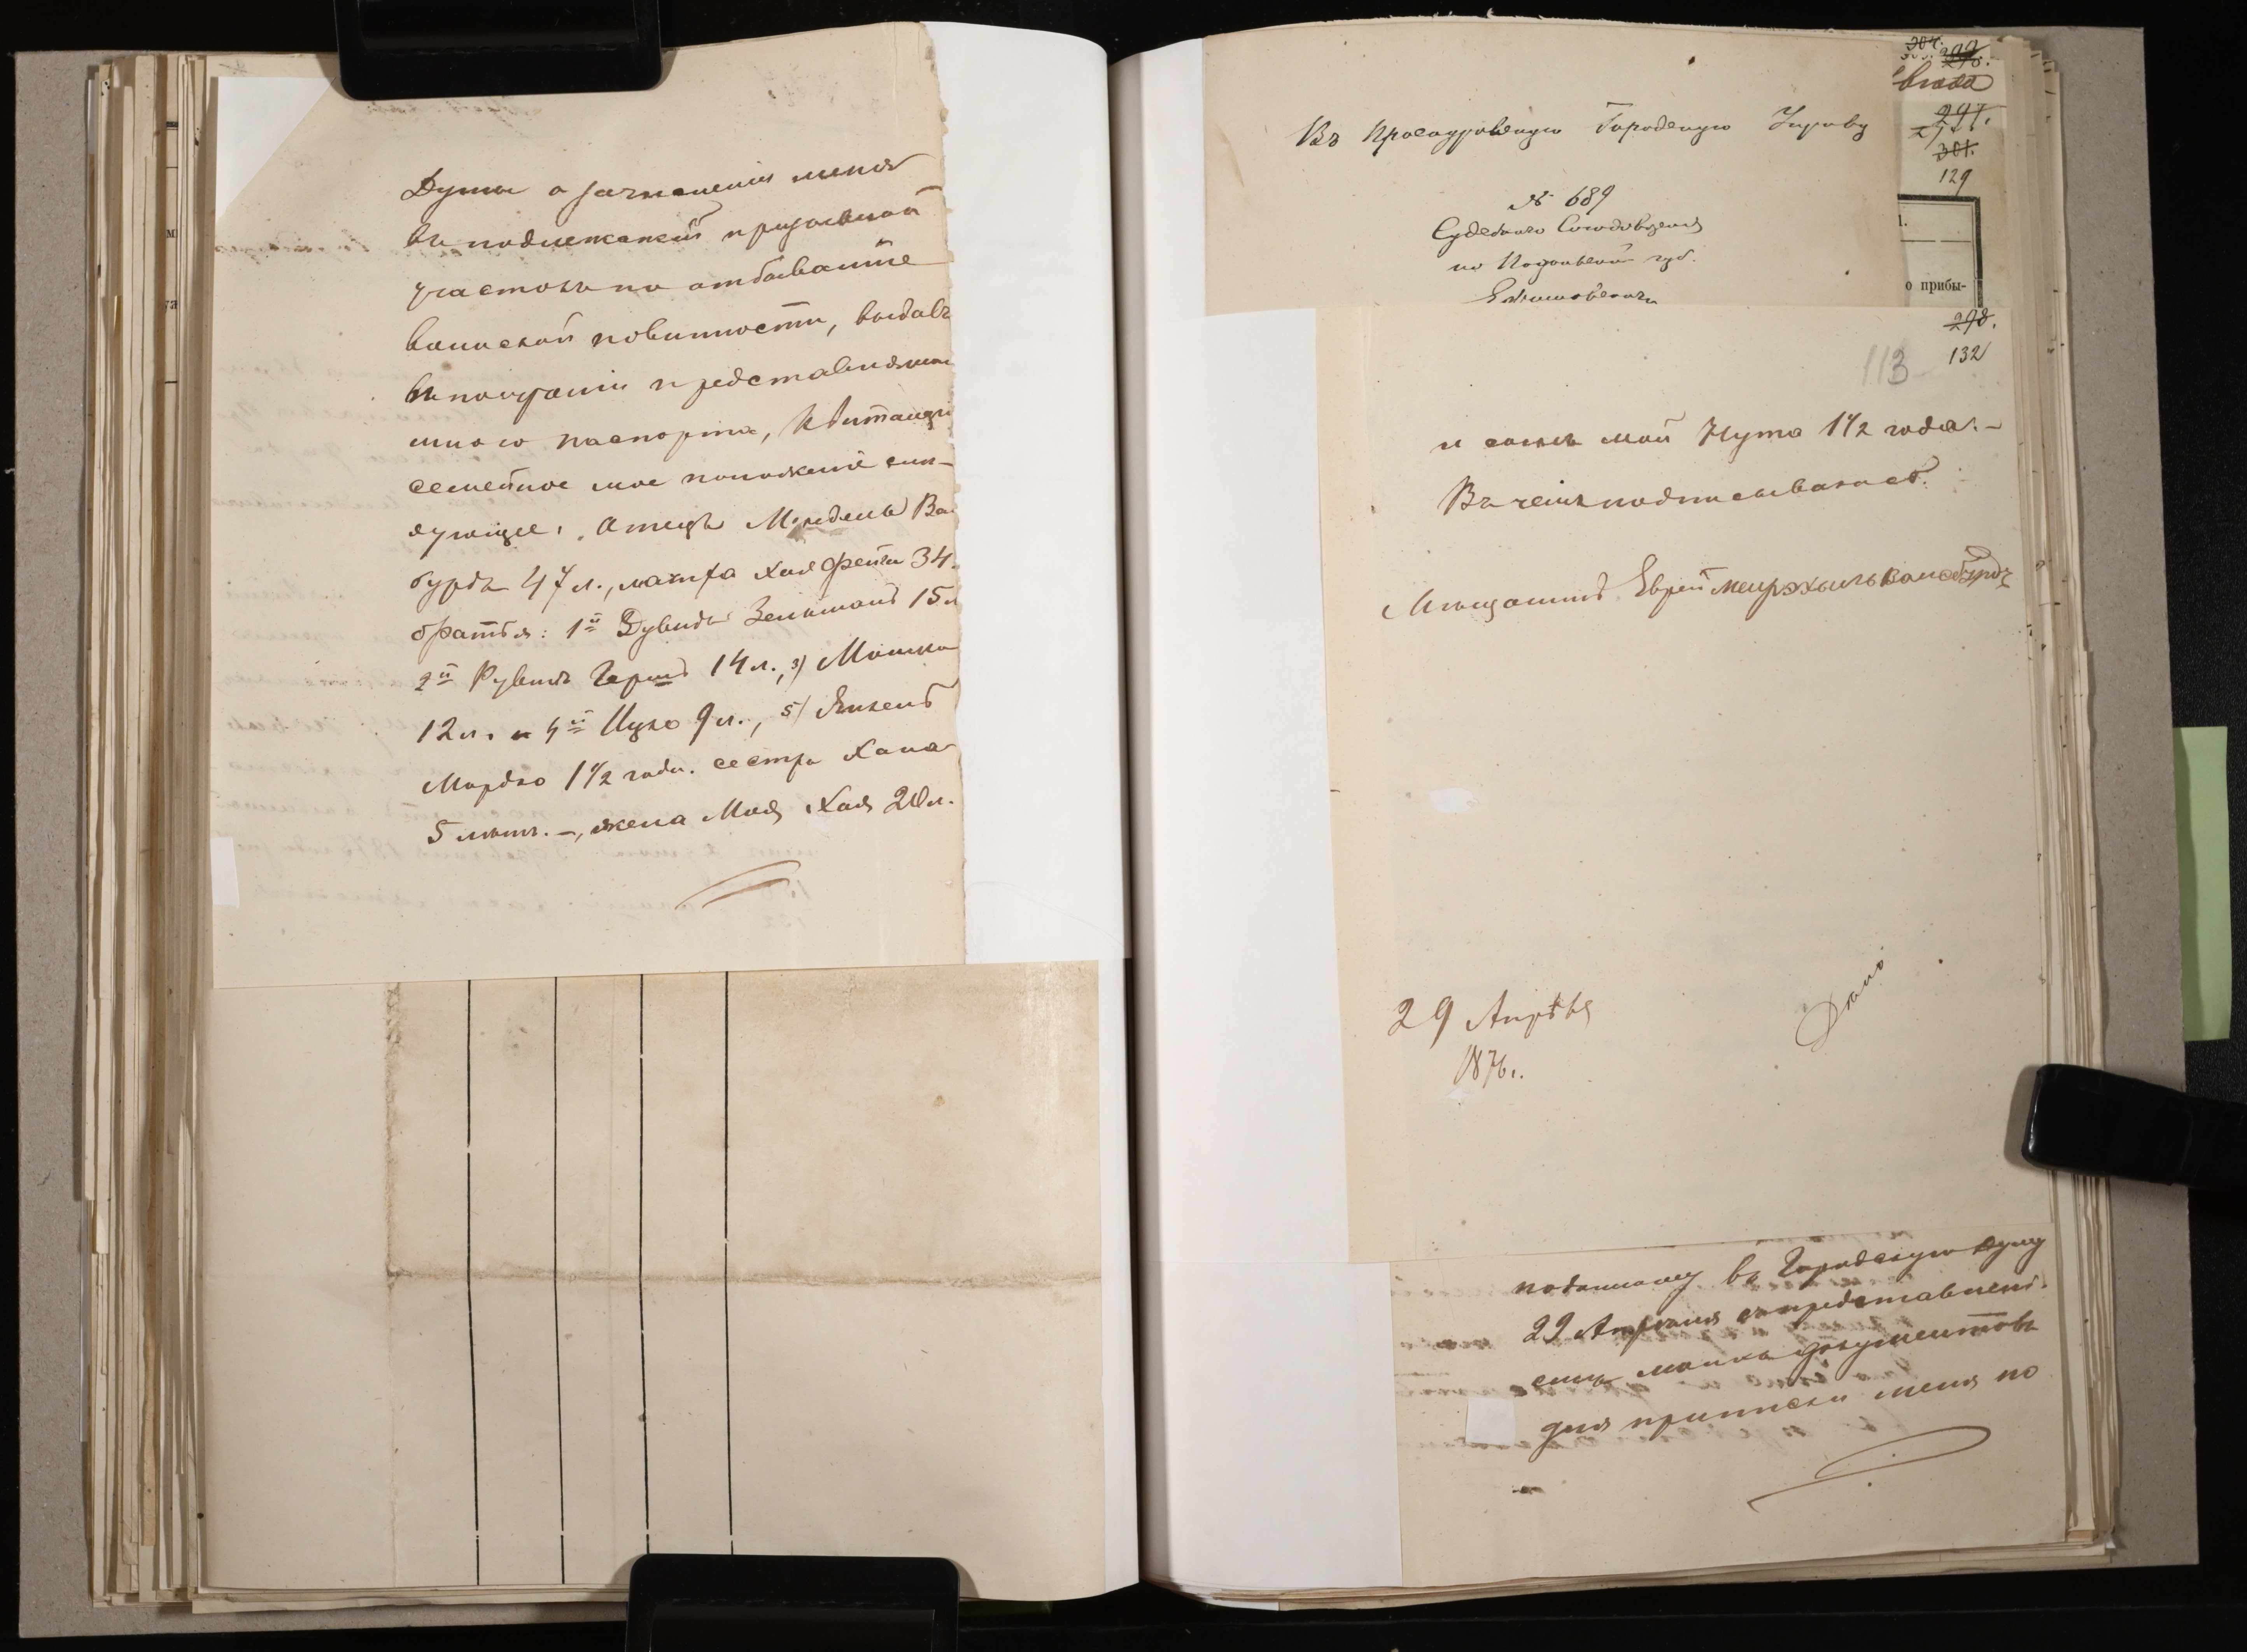 Думы о зачисленіи меня
въ подлежащій призывной
участокъ по отбыванію
воинской повинности, выдавъ
въ полученіи представляемаго
мною паспорта, Квитанцію
семейное мое положеніе слѣ-
дующее: Отецъ Мордель Ва
бурдъ 47 л., мачиха Хая Фейга 34.
братья: 1й Дувидъ Зельманъ 15 л
2й Рувинъ Гершъ 14 л., 3) Мошко
12 л. и 4й Ицко 9 л., 5) Янкель
Мордко 1 1/2 года. сестра Хана
5 лѣтъ. —, жена Моя Хая 20 л.
Въ Проскуровскую Городскую Управу
№ 689
Судебнаго Слѣдователя
по Подольской губ.
297.
301.
129
1.
о прибы-
298.
132
113
и сынъ мой Нута 1 1/2 года. —
Въ чемъ подписываюсь.
Мѣщанинъ Еврей
29 Апрѣля
1876.
поданному въ Городскую Думу
29 Апрѣля съ представлені-
емъ моихъ документовъ
для приписки меня по